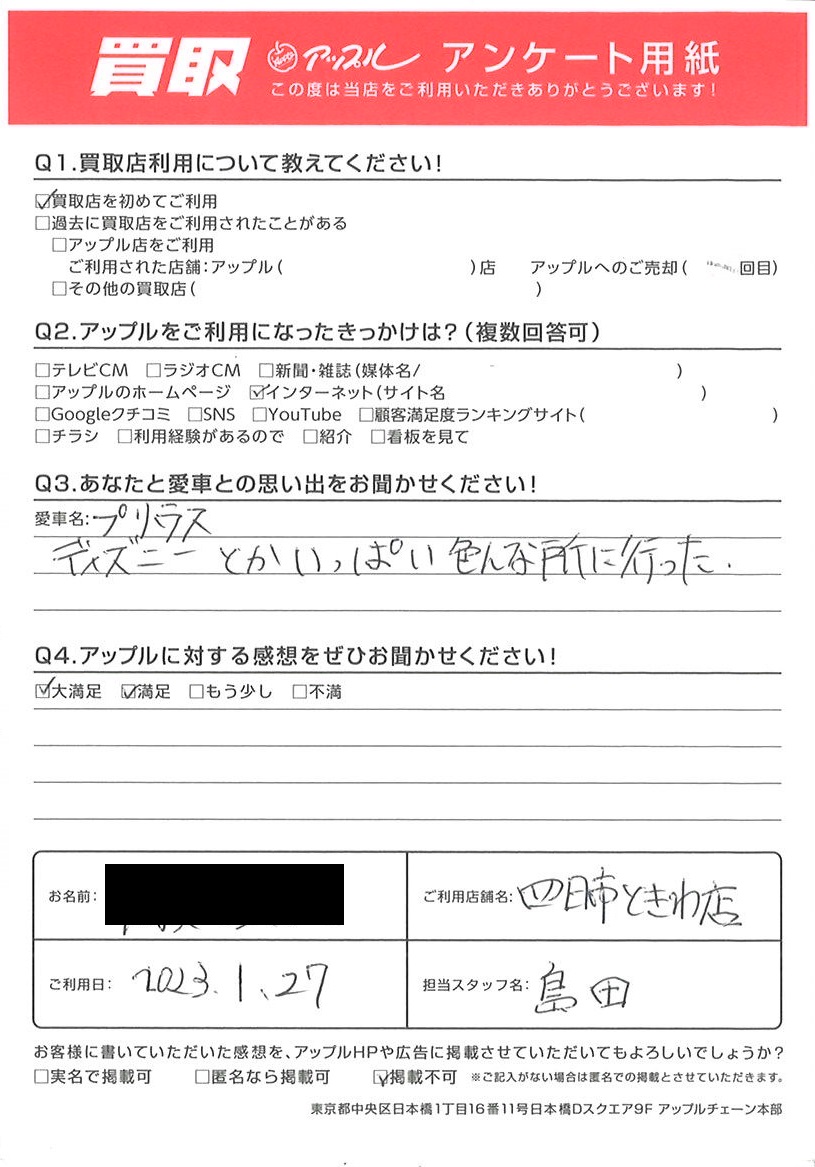 買取 アップル アンケート用紙
この度は当店をご利用いただきありがとうございます！
Q1.買取店利用について教えてください！
☑買取店を初めてご利用
□過去に買取店をご利用されたことがある
□アップル店をご利用
ご利用された店舗：アップル（ ）店 アップルへのご売却（ 回目）
□その他の買取店（ ）
Q2.アップルをご利用になったきっかけは？（複数回答可）
□テレビCM □ラジオCM □新聞・雑誌（媒体名/ ）
□アップルのホームページ ☑インターネット（サイト名 ）
□Googleクチコミ □SNS □YouTube □顧客満足度ランキングサイト（ ）
□チラシ □利用経験があるので □紹介 □看板を見て
Q3.あなたと愛車との思い出をお聞かせください！
愛車名：プリウス
ディズニーとかいっぱい色んな所に行った.
Q4.アップルに対する感想をぜひお聞かせください！
☑大満足 ☑満足 □もう少し □不満
お名前： ご利用店舗名：四日市ときわ店
ご利用日： 2023.1.27 担当スタッフ名：島田
お客様に書いていただいた感想を、アップルHPや広告に掲載させていただいてもよろしいでしょうか？
□実名で掲載可 □匿名なら掲載可 ☑掲載不可 ※ご記入がない場合は匿名での掲載とさせていただきます。
東京都中央区日本橋1丁目16番11号日本橋Dスクエア9F アップルチェーン本部